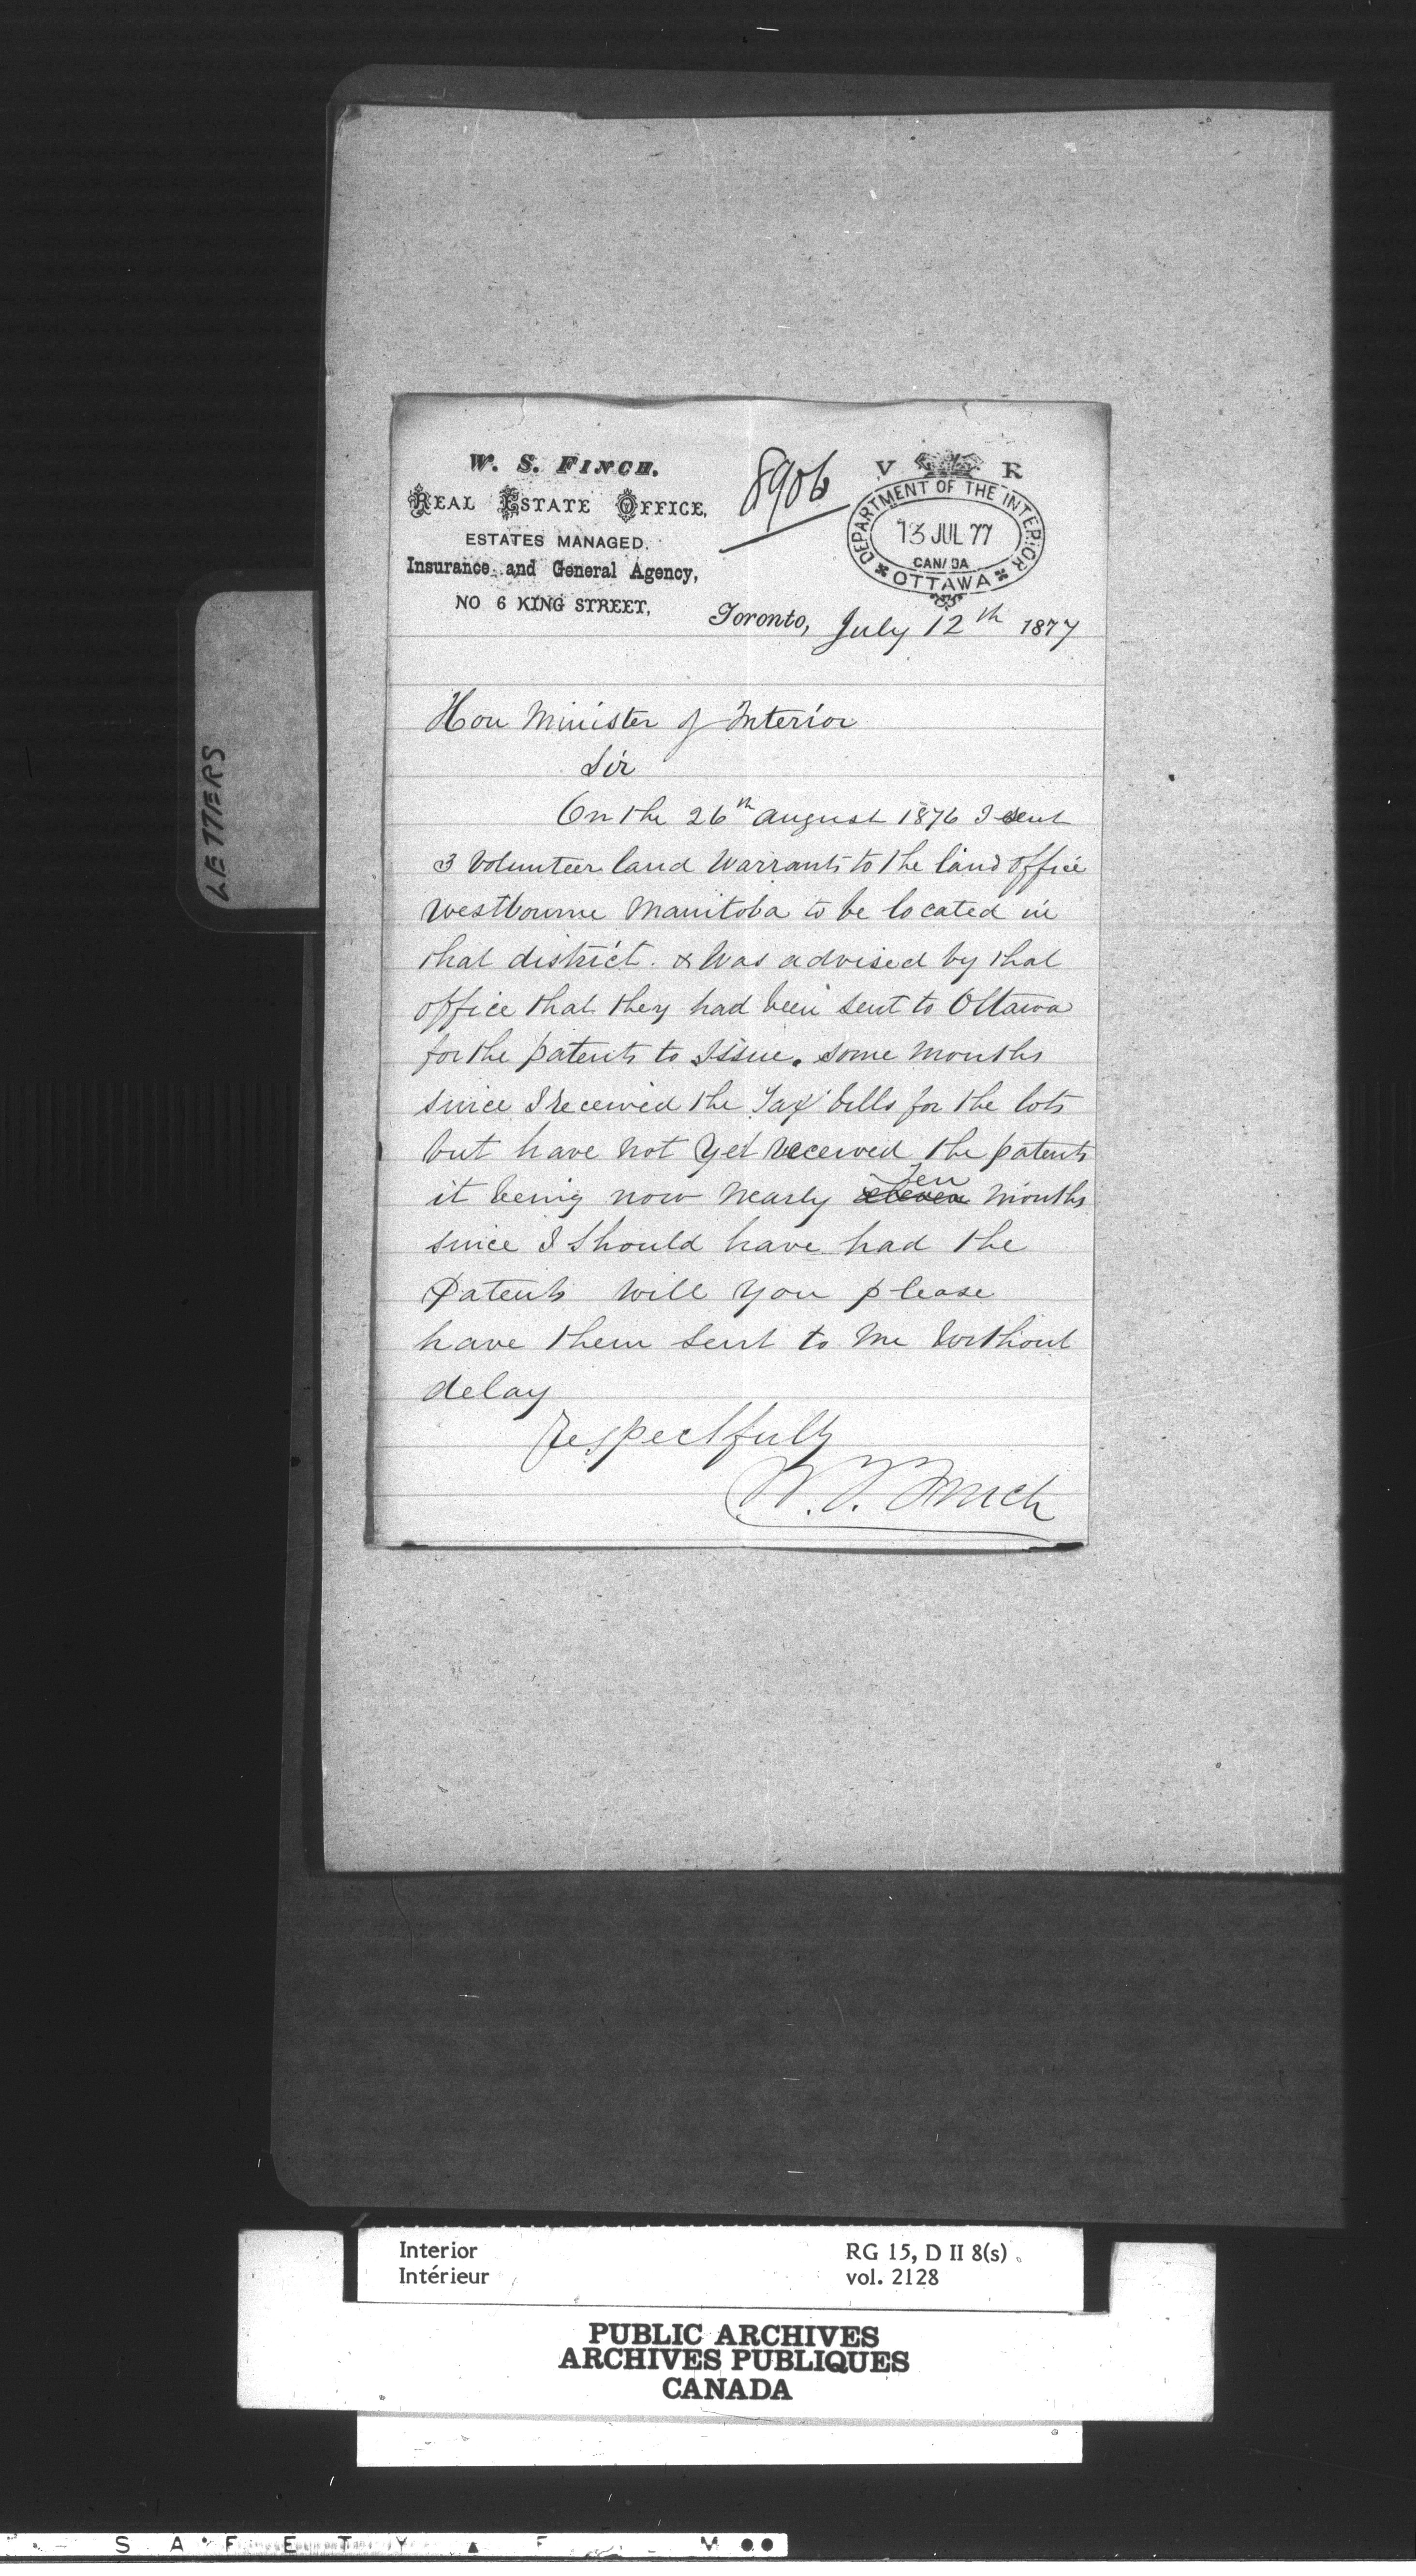 W. S. FINCH.
REAL ESTATE OFFICE,
ESTATES MANAGED.
Insurance and General Agency,
NO 6 KING STREET,
8906
V R
DEPARTMENT OF THE INTERIOR
13 JUL 77
CANADA
OTTAWA
Toronto, July 12th 1877
Hon Minister of Interior
Sir
On the 26th August 1876 I sent
3 Volunteer land Warrants to the land office
Westbourne Manitoba to be located in
that district. & Was advised by that
office that they had been sent to Ottawa
for the patents to Issue. Some Months
since I received the Tax bills for the lots
but have not yet received the patents
Ten
it being now nearly eleven months
since I Should have had the
Patents Will you please
have them sent to me Without
delay
Respectfully
W. S. Finch
LETTERS
Interior
Intérieur
RG 15, D II 8(s)
vol. 2128
PUBLIC ARCHIVES
ARCHIVES PUBLIQUES
CANADA
S A F E T Y ▲ F M ●●